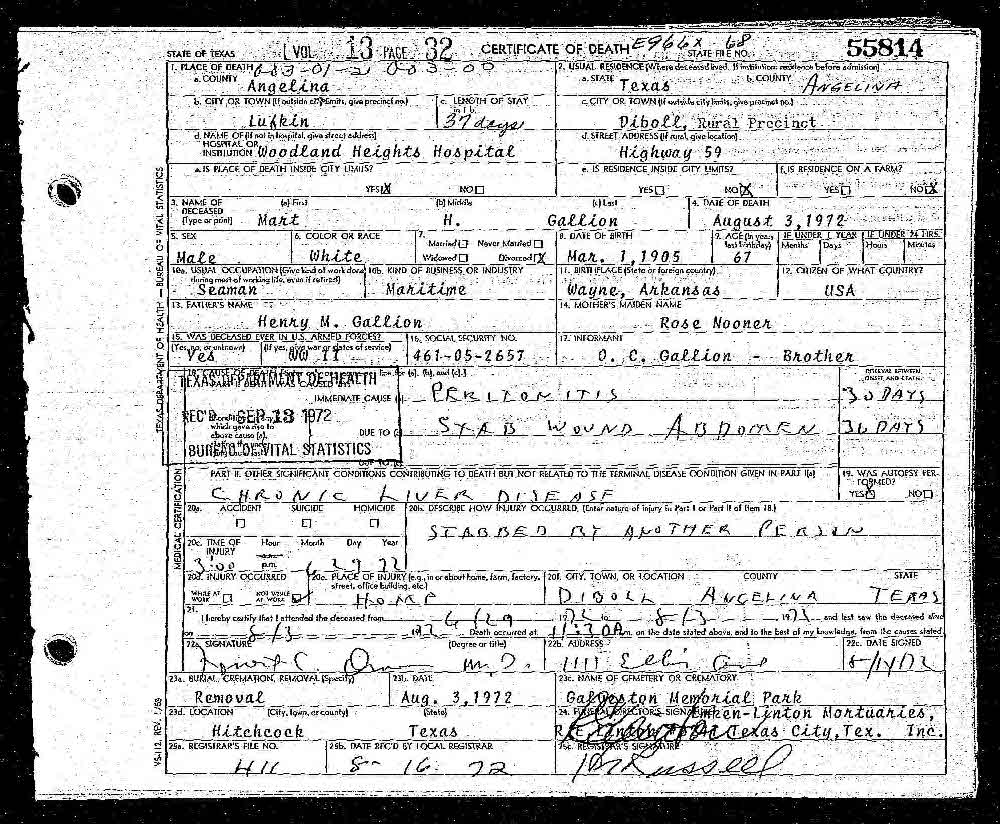 STATE OF TEXAS VOL 13 PAGE 32 CERTIFICATE OF DEATH STATE FILE NO. 55814
1. PLACE OF DEATH
2. USUAL RESIDENCE (Where deceased lived. If institution: residence before admission)
a. COUNTY Angelina
a. STATE Texas b. COUNTY ANGELINA
b. CITY OR TOWN (If outside city limits, give precinct no.) Lufkin
c. LENGTH OF STAY in 1b. 37 days
c. CITY OR TOWN (If outside city limits, give precinct no.) Diboll, Rural Precinct
d. NAME OF (If not in hospital, give street address) HOSPITAL OR INSTITUTION Woodland Heights Hospital
d. STREET ADDRESS (If rural, give location) Highway 59
e. IS PLACE OF DEATH INSIDE CITY LIMITS? YES X NO
e. IS RESIDENCE INSIDE CITY LIMITS? YES NO X
f. IS RESIDENCE ON A FARM? YES NO X
3. NAME OF DECEASED (Type or print) (a) First Mart (b) Middle H. (c) Last Gallion
4. DATE OF DEATH August 3, 1972
5. SEX Male
6. COLOR OR RACE White
7. Married Never Married Widowed Divorced X
8. DATE OF BIRTH Mar. 1, 1905
9. AGE (In years last birthday) 67 IF UNDER 1 YEAR Months Days IF UNDER 24 HRS. Hours Minutes
10a. USUAL OCCUPATION (Give kind of work done during most of working life, even if retired) Seaman
10b. KIND OF BUSINESS OR INDUSTRY Maritime
11. BIRTHPLACE (State or foreign country) Wayne, Arkansas
12. CITIZEN OF WHAT COUNTRY? USA
13. FATHER'S NAME Henry M. Gallion
14. MOTHER'S MAIDEN NAME Rose Nooner
15. WAS DECEASED EVER IN U.S. ARMED FORCES? (Yes, no, or unknown) Yes (If yes, give war or dates of service) WW II
16. SOCIAL SECURITY NO. 461-05-2657
17. INFORMANT O. C. Gallion - Brother
TEXAS DEPARTMENT OF HEALTH
REC'D SEP 13 1972
BUREAU OF VITAL STATISTICS
INTERVAL BETWEEN ONSET AND DEATH
IMMEDIATE CAUSE (a) PERITONITIS 30 DAYS
which gave rise to above cause (a),
DUE TO STAB WOUND ABDOMEN 36 DAYS
DUE TO
PART II. OTHER SIGNIFICANT CONDITIONS CONTRIBUTING TO DEATH BUT NOT RELATED TO THE TERMINAL DISEASE CONDITION GIVEN IN PART I(a)
CHRONIC LIVER DISEASE
19. WAS AUTOPSY PERFORMED? YES X NO
20a. ACCIDENT SUICIDE HOMICIDE
20b. DESCRIBE HOW INJURY OCCURRED. (Enter nature of injury in Part I or Part II of Item 18.)
STABBED BY ANOTHER PERSON
20c. TIME OF INJURY Hour Month Day Year
3:00 p.m. 6 29 72
20d. INJURY OCCURRED WHILE AT WORK NOT WHILE AT WORK
20e. PLACE OF INJURY (e.g., in or about home, farm, factory, street, office building, etc.) HOME
20f. CITY, TOWN, OR LOCATION COUNTY STATE
DIBOLL ANGELINA TEXAS
21. I hereby certify that I attended the deceased from 6/29 1972 to 8/3 1972 and last saw the deceased alive
8/3 1972 Death occurred at 11:30 A m. on the date stated above, and to the best of my knowledge, from the causes stated.
22a. SIGNATURE (Degree or title) M.D.
22b. ADDRESS 1111 Ellis
22c. DATE SIGNED 8/14/72
23a. BURIAL, CREMATION, REMOVAL (Specify) Removal
23b. DATE Aug. 3, 1972
23c. NAME OF CEMETERY OR CREMATORY Galveston Memorial Park
23d. LOCATION (City, town, or county) (State)
Hitchcock Texas
24. FUNERAL DIRECTOR'S SIGNATURE Emken-Linton Mortuaries,
Texas City, Tex. Inc.
25a. REGISTRAR'S FILE NO. 411
25b. DATE REC'D BY LOCAL REGISTRAR 8- 16 72
25c. REGISTRAR'S SIGNATURE Russell
TEXAS DEPARTMENT OF HEALTH — BUREAU OF VITAL STATISTICS
MEDICAL CERTIFICATION
VS-112, REV. 1/69